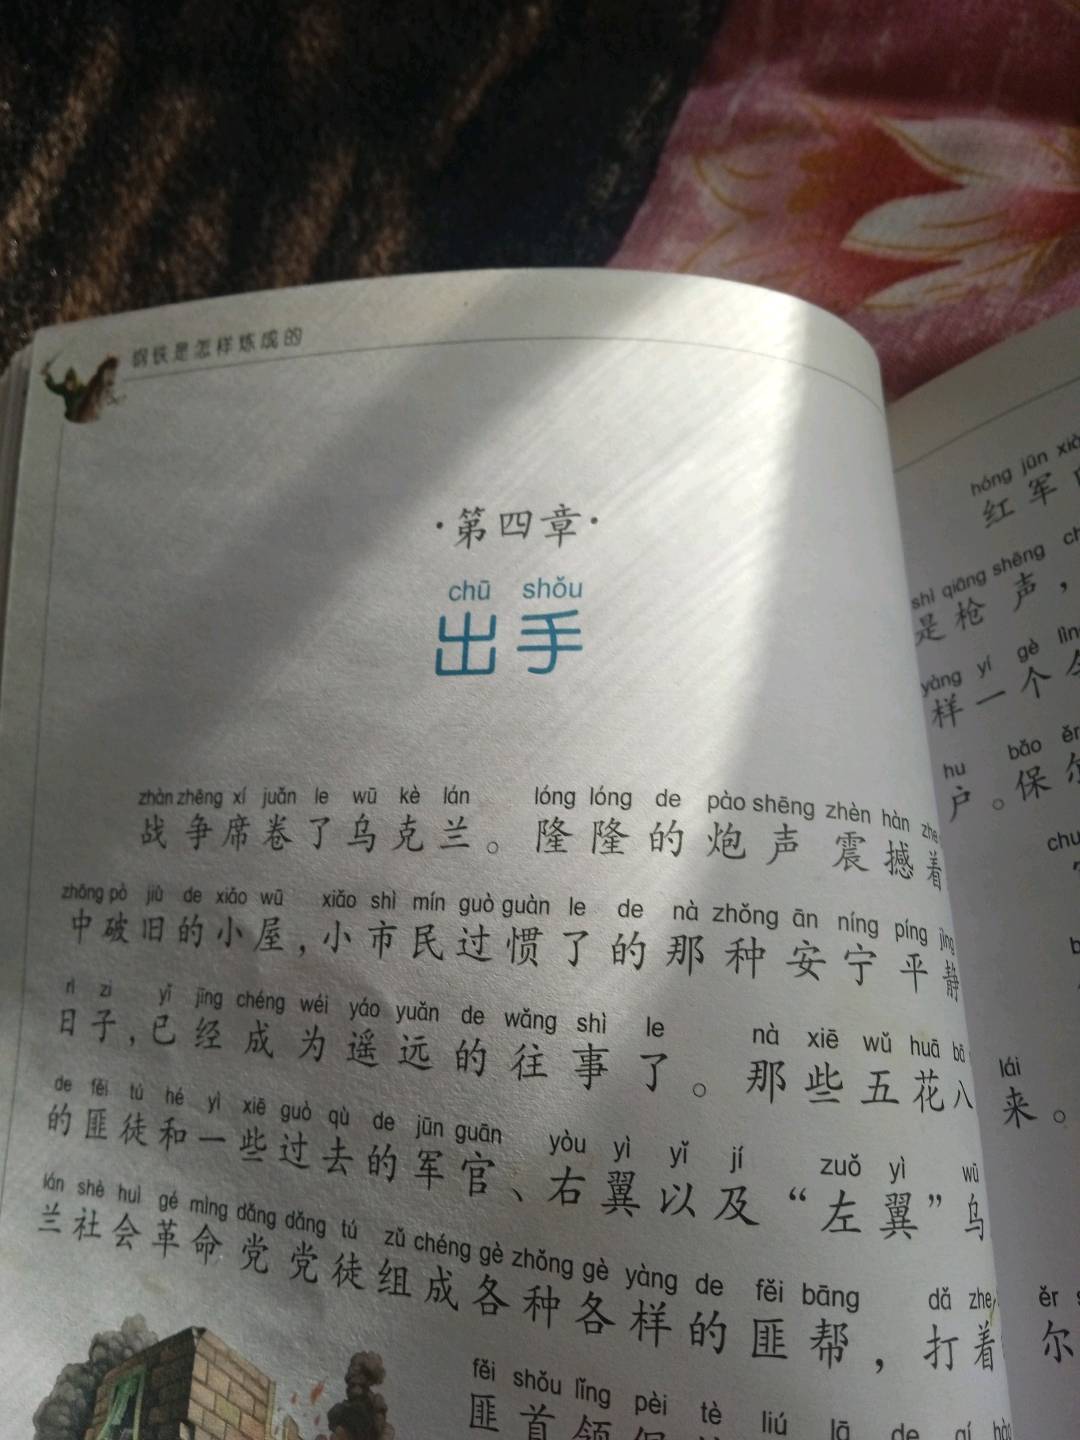 钢铁是怎样炼成的
·第四章·
chū shǒu
出手
zhàn zhēng xí juǎn le wū kè lán lóng lóng de pào shēng zhèn hàn zhe
战争席卷了乌克兰。隆隆的炮声震撼着
zhōng pò jiù de xiǎo wū xiǎo shì mín guò guàn le de nà zhǒng ān níng píng jìng
中破旧的小屋，小市民过惯了的那种安宁平静
rì zi yǐ jīng chéng wéi yáo yuǎn de wǎng shì le nà xiē wǔ huā bā
日子，已经成为遥远的往事了。那些五花八
de fěi tú hé yì xiē guò qù de jūn guān yòu yì yǐ jí zuǒ yì wū
的匪徒和一些过去的军官、右翼以及“左翼”乌
lán shè huì gé mìng dǎng dǎng tú zǔ chéng gè zhǒng gè yàng de fěi bāng dǎ zhe
兰社会革命党党徒组成各种各样的匪帮，打着
fěi shǒu lǐng pèi tè liú lā de
匪首领佩
hóng jūn
红军
shì qiāng shēng
是枪声，
yàng yí gè
样一个
hu bǎo
户。保
lái
来。
ěr
尔